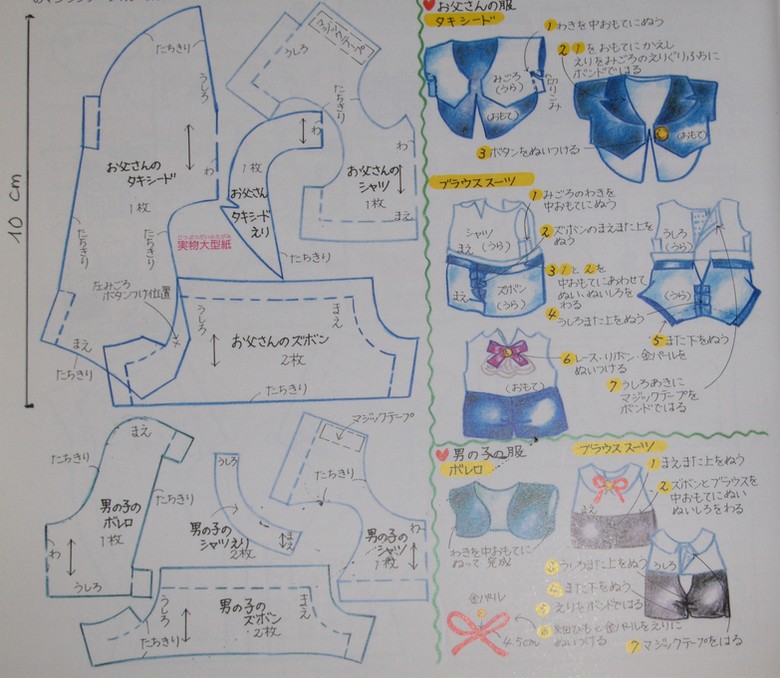 10 cm
たちきり
うしろ
わ
お父さんの
タキシード
1枚
たちきり
たちきり
左みごろ
ボタンつけ位置
まえ
たちきり
マジックテープ
うしろ
たちきり
わ
1枚
お父さん
タキシード
えり
お父さんの
シャツ
1枚
まえ
実物大型紙
たちきり
うしろ
まえ
お父さんのズボン
2枚
たちきり
まえ
たちきり
たちきり
男の子の
ボレロ
1枚
わ
うしろ
うしろ
男の子の
シャツえり
2枚
まえ
マジックテープ
たちきり
わ
男の子の
シャツ
1枚
うしろ
まえ
男の子の
ズボン
2枚
たちきり
お父さんの服
タキシード
1 わきを中おもてにぬう
2 1をおもてにかえし
えりをみごろのえりぐりふちに
ボンドではる
みごろ
(うら)
切りこみ
(おもて)
(おもて)
3 ボタンをぬいつける
ブラウススーツ
1 みごろのわきを
中おもてにぬう
2 ズボンのまえまた上を
ぬう
シャツ
まえ (うら)
まえ ズボン
(うら)
うしろ
(うら)
(うら)
3 1と2を
中おもてにあわせて
ぬい・ぬいしろを
わる
4 うしろまた上をぬう
5 また下をぬう
6 レース・リボン・金パールを
ぬいつける
(おもて)
7 うしろあきに
マジックテープを
ボンドではる
男の子の服
ボレロ
わきを中おもてに
ぬって完成
ブラウススーツ
1 まえまた上をぬう
2 ズボンとブラウスを
中おもてにぬい
ぬいしろをわる
まえ
うしろ
3 うしろまた上をぬう
4 また下をぬう
5 えりをボンドではる
金パール
4.5cm
ひもと金パールをえりに
ぬいつける
7 マジックテープをはる